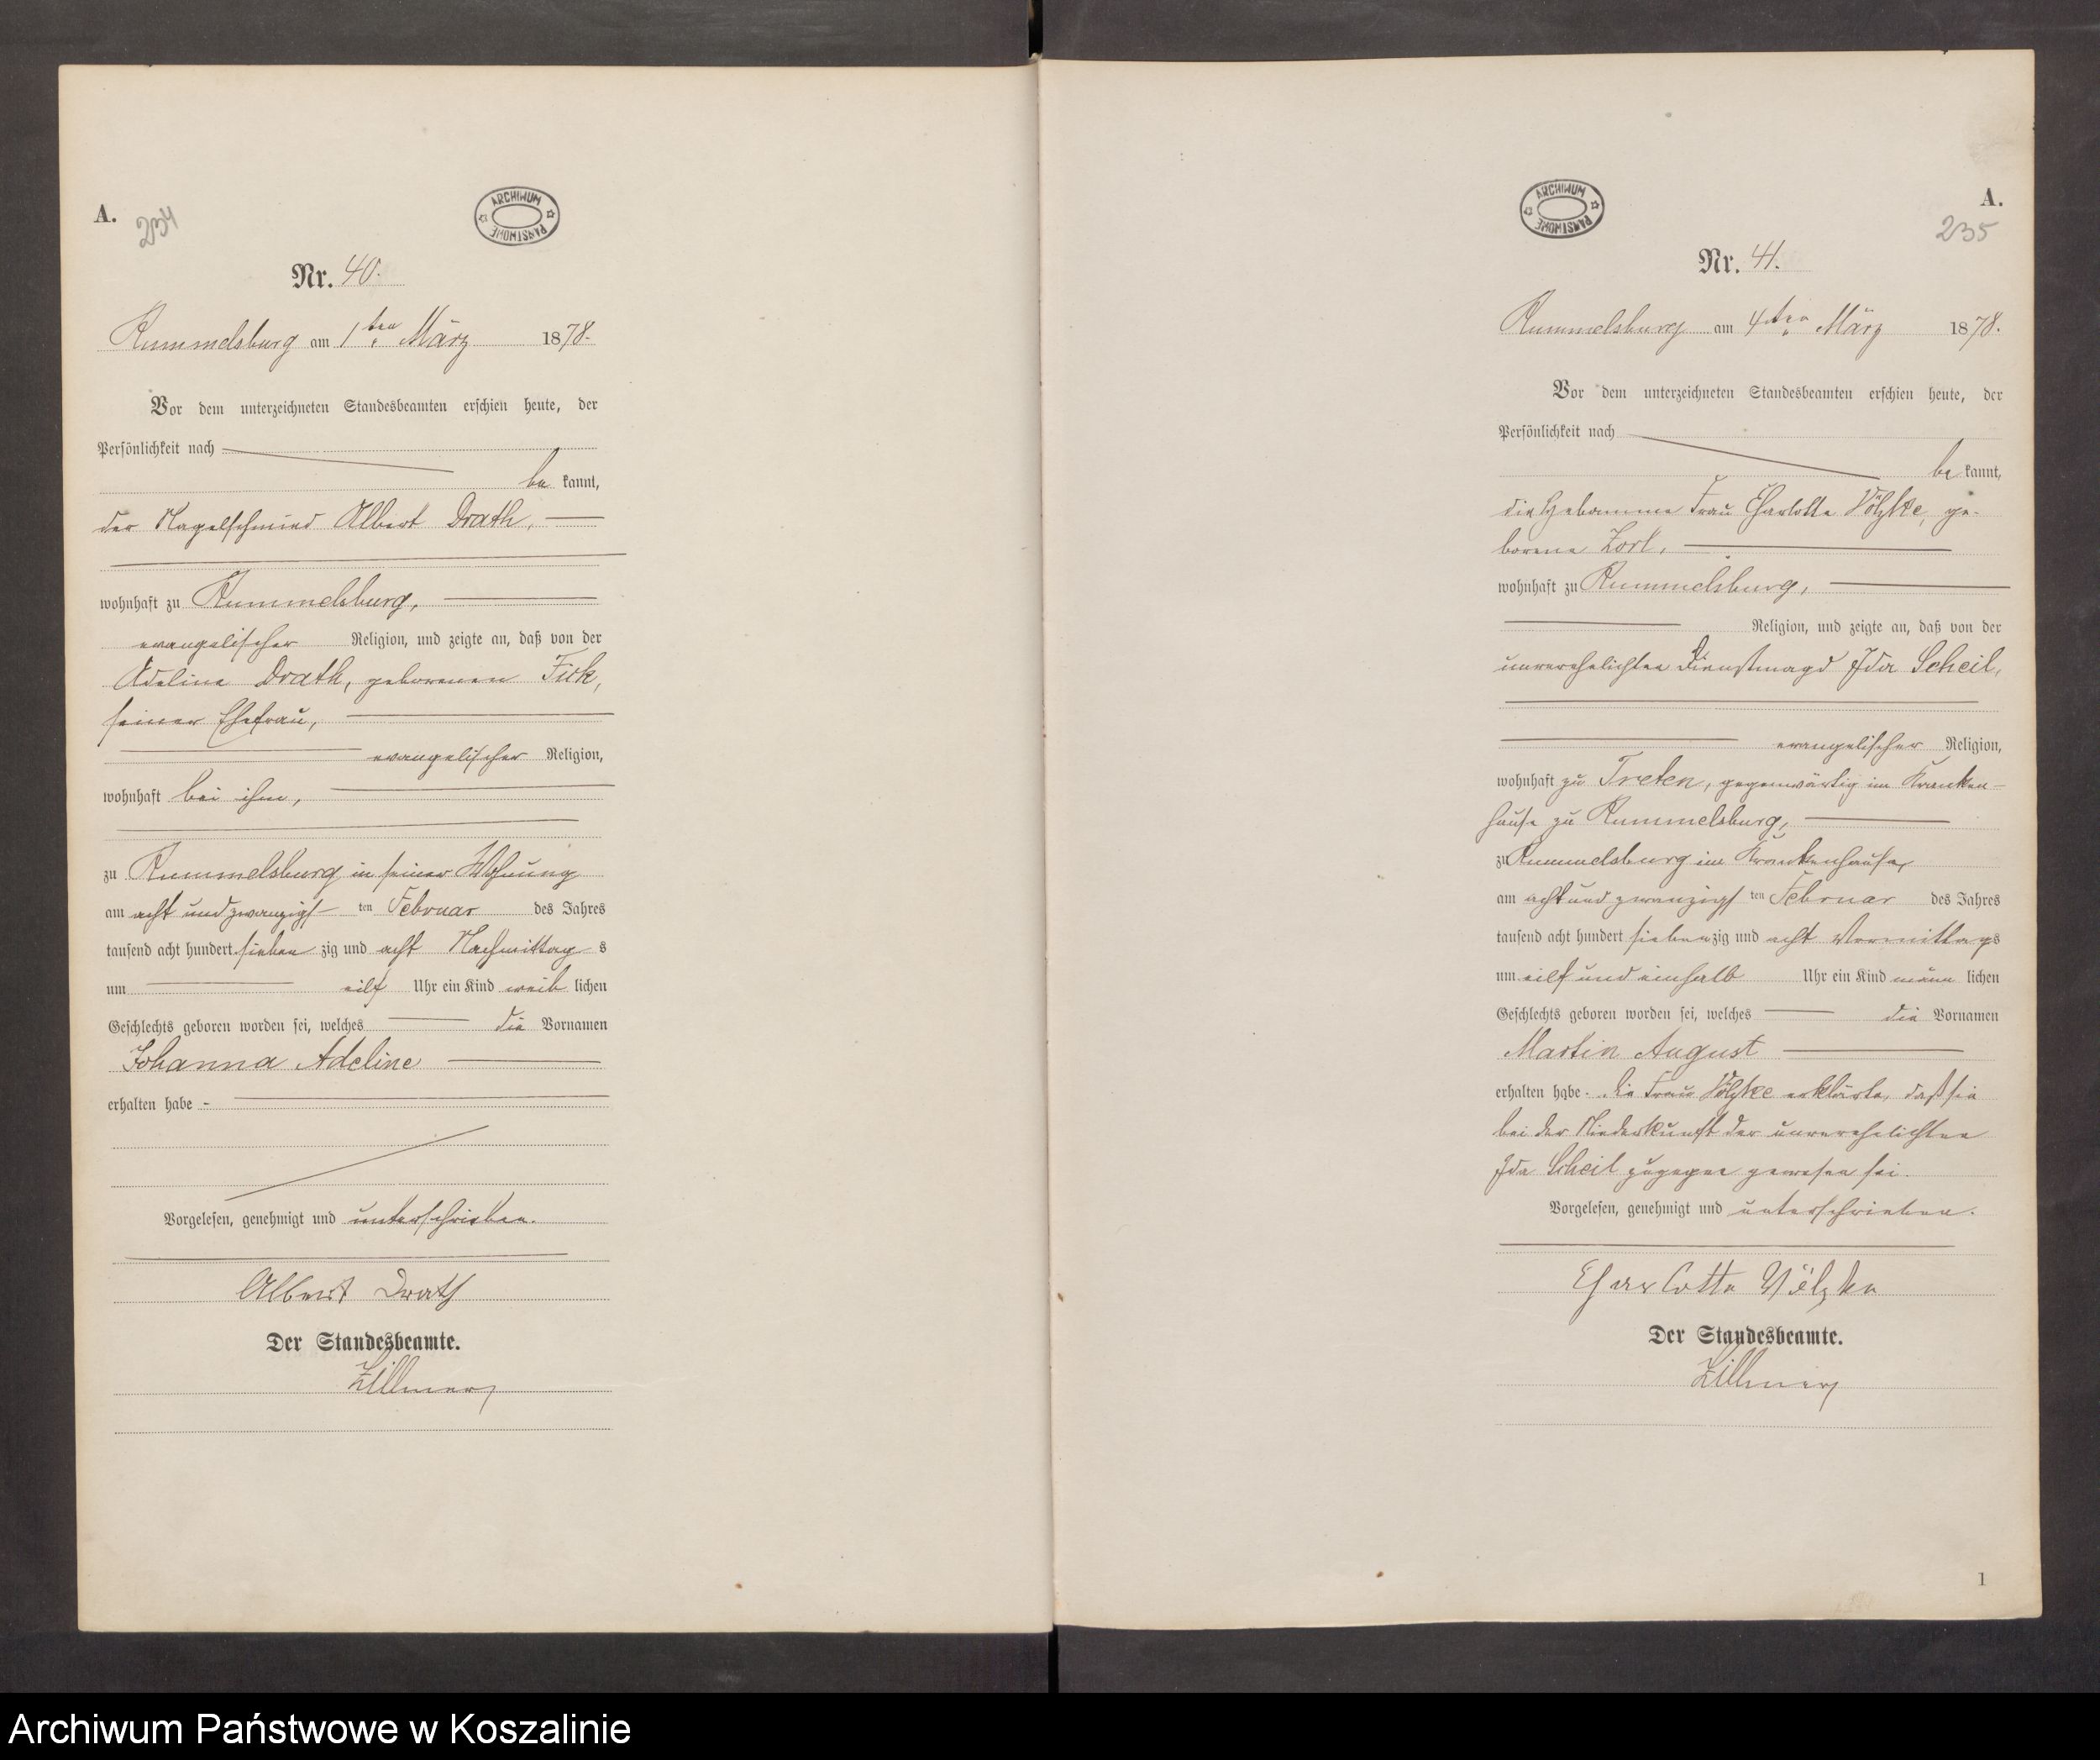 A.
234
ARCHIWUM PAŃSTWOWE
Nr. 40.
Rummelsburg am 1ten März 1878.
Vor dem unterzeichneten Standesbeamten erschien heute, der
Persönlichkeit nach
be kannt,
der Nagelschmied Albert Drath,
wohnhaft zu Rummelsburg,
evangelischer Religion, und zeigte an, daß von der
Adeline Drath, geborenen Fick,
seiner Ehefrau,
evangelischer Religion,
wohnhaft bei ihm,
zu Rummelsburg in seiner Wohnung
am acht und zwanzigsten Februar des Jahres
tausend acht hundert sieben zig und acht Nachmittag s
um eilf Uhr ein Kind weib lichen
Geschlechts geboren worden sei, welches die Vornamen
Johanna Adeline
erhalten habe -
Vorgelesen, genehmigt und unterschrieben.
Albert Drath
Der Standesbeamte.
Zillmer
ARCHIWUM PAŃSTWOWE
A.
235
Nr. 41.
Rummelsburg am 4ten März 1878.
Vor dem unterzeichneten Standesbeamten erschien heute, der
Persönlichkeit nach
be kannt,
die Hebamme Frau Charlotte Völzke, ge-
borene
wohnhaft zu Rummelsburg,
Religion, und zeigte an, daß von der
unverehelichten Dienstmagd Ida Scheil,
evangelischer Religion,
wohnhaft zu Treten, gegenwärtig im Kranken-
hause zu Rummelsburg,
zu Rummelsburg im Krankenhause,
am acht und zwanzigsten Februar des Jahres
tausend acht hundert siebenzig und acht Vormittags
um eilf und einhalb Uhr ein Kind männ lichen
Geschlechts geboren worden sei, welches die Vornamen
Martin August
erhalten habe. Die Frau Völzke erklärte, daß sie
bei der Niederkunft der unverehelichten
Ida Scheil zugegen gewesen sei.
Vorgelesen, genehmigt und unterschrieben.
Charlotte Völzke
Der Standesbeamte.
Zillmer
1
Archiwum Państwowe w Koszalinie